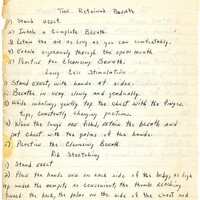 The Retained Breath
1) Stand erect.
2) Inhale a Complete Breath.
3) Retain the air as long as you can comfortably.
4) Exhale vigorously through the open mouth.
5) Practice the Cleansing Breath.
Lung Cell Stimulation
1) Stand erect, with hands at sides.
2) Breathe in very slowly and gradually.
3) While inhaling, gently tap the chest with the finger
tips, constantly changing positions.
4) When the lungs are filled, retain the breath and
pat chest with the palms of the hands.
5) Practice the Cleansing Breath.
Rib Stretching
1) Stand erect
2) Place the hands one on each side of the body, as high
up under the armpits as convenient, the thumbs reaching
toward the back, the palms on the side of the chest and